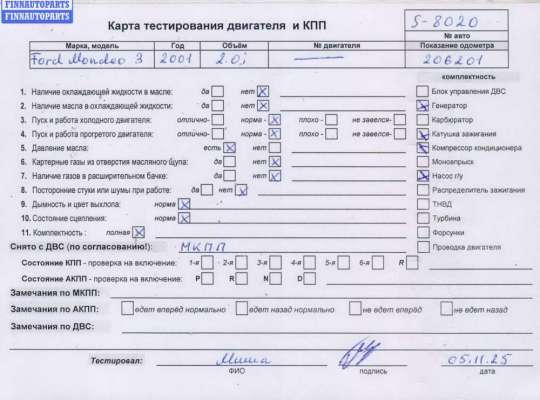 FINNAUTOPARTS
FINNAUTOPARTS
Карта тестирования двигателя и КПП
S-8020
№ авто
Марка, модель Год Объём № двигателя Показание одометра
Ford Mondeo 3 2001 2.0i — 206201
комплектность
1. Наличие охлаждающей жидкости в масле: да нет Блок управления ДВС
2. Наличие масла в охлаждающей жидкости: да нет Генератор
3. Пуск и работа холодного двигателя: отлично- норма - плохо - не завелся- Карбюратор
4. Пуск и работа прогретого двигателя: отлично- норма - плохо - не завелся- Катушка зажигания
5. Давление масла: есть нет Компрессор кондиционера
6. Картерные газы из отверстия масляного щупа: да нет Моновпрыск
7. Наличие газов в расширительном бачке: да нет Насос г/у
8. Посторонние стуки или шумы при работе: да нет Распределитель зажигания
9. Дымность и цвет выхлопа: норма ТНВД
10. Состояние сцепления: норма Турбина
11. Комплектность : полная Форсунки
Снято с ДВС (по согласованию!): МКПП Проводка двигателя
Состояние КПП - проверка на включение: 1-я 2-я 3-я 4-я 5-я 6-я R
Состояние АКПП - проверка на включение: P R N D
Замечания по МКПП:
Замечания по АКПП: едет вперёд нормально едет назад нормально не едет вперёд не едет назад
Замечания по ДВС:
Тестировал: Миша 05.11.25
ФИО подпись дата